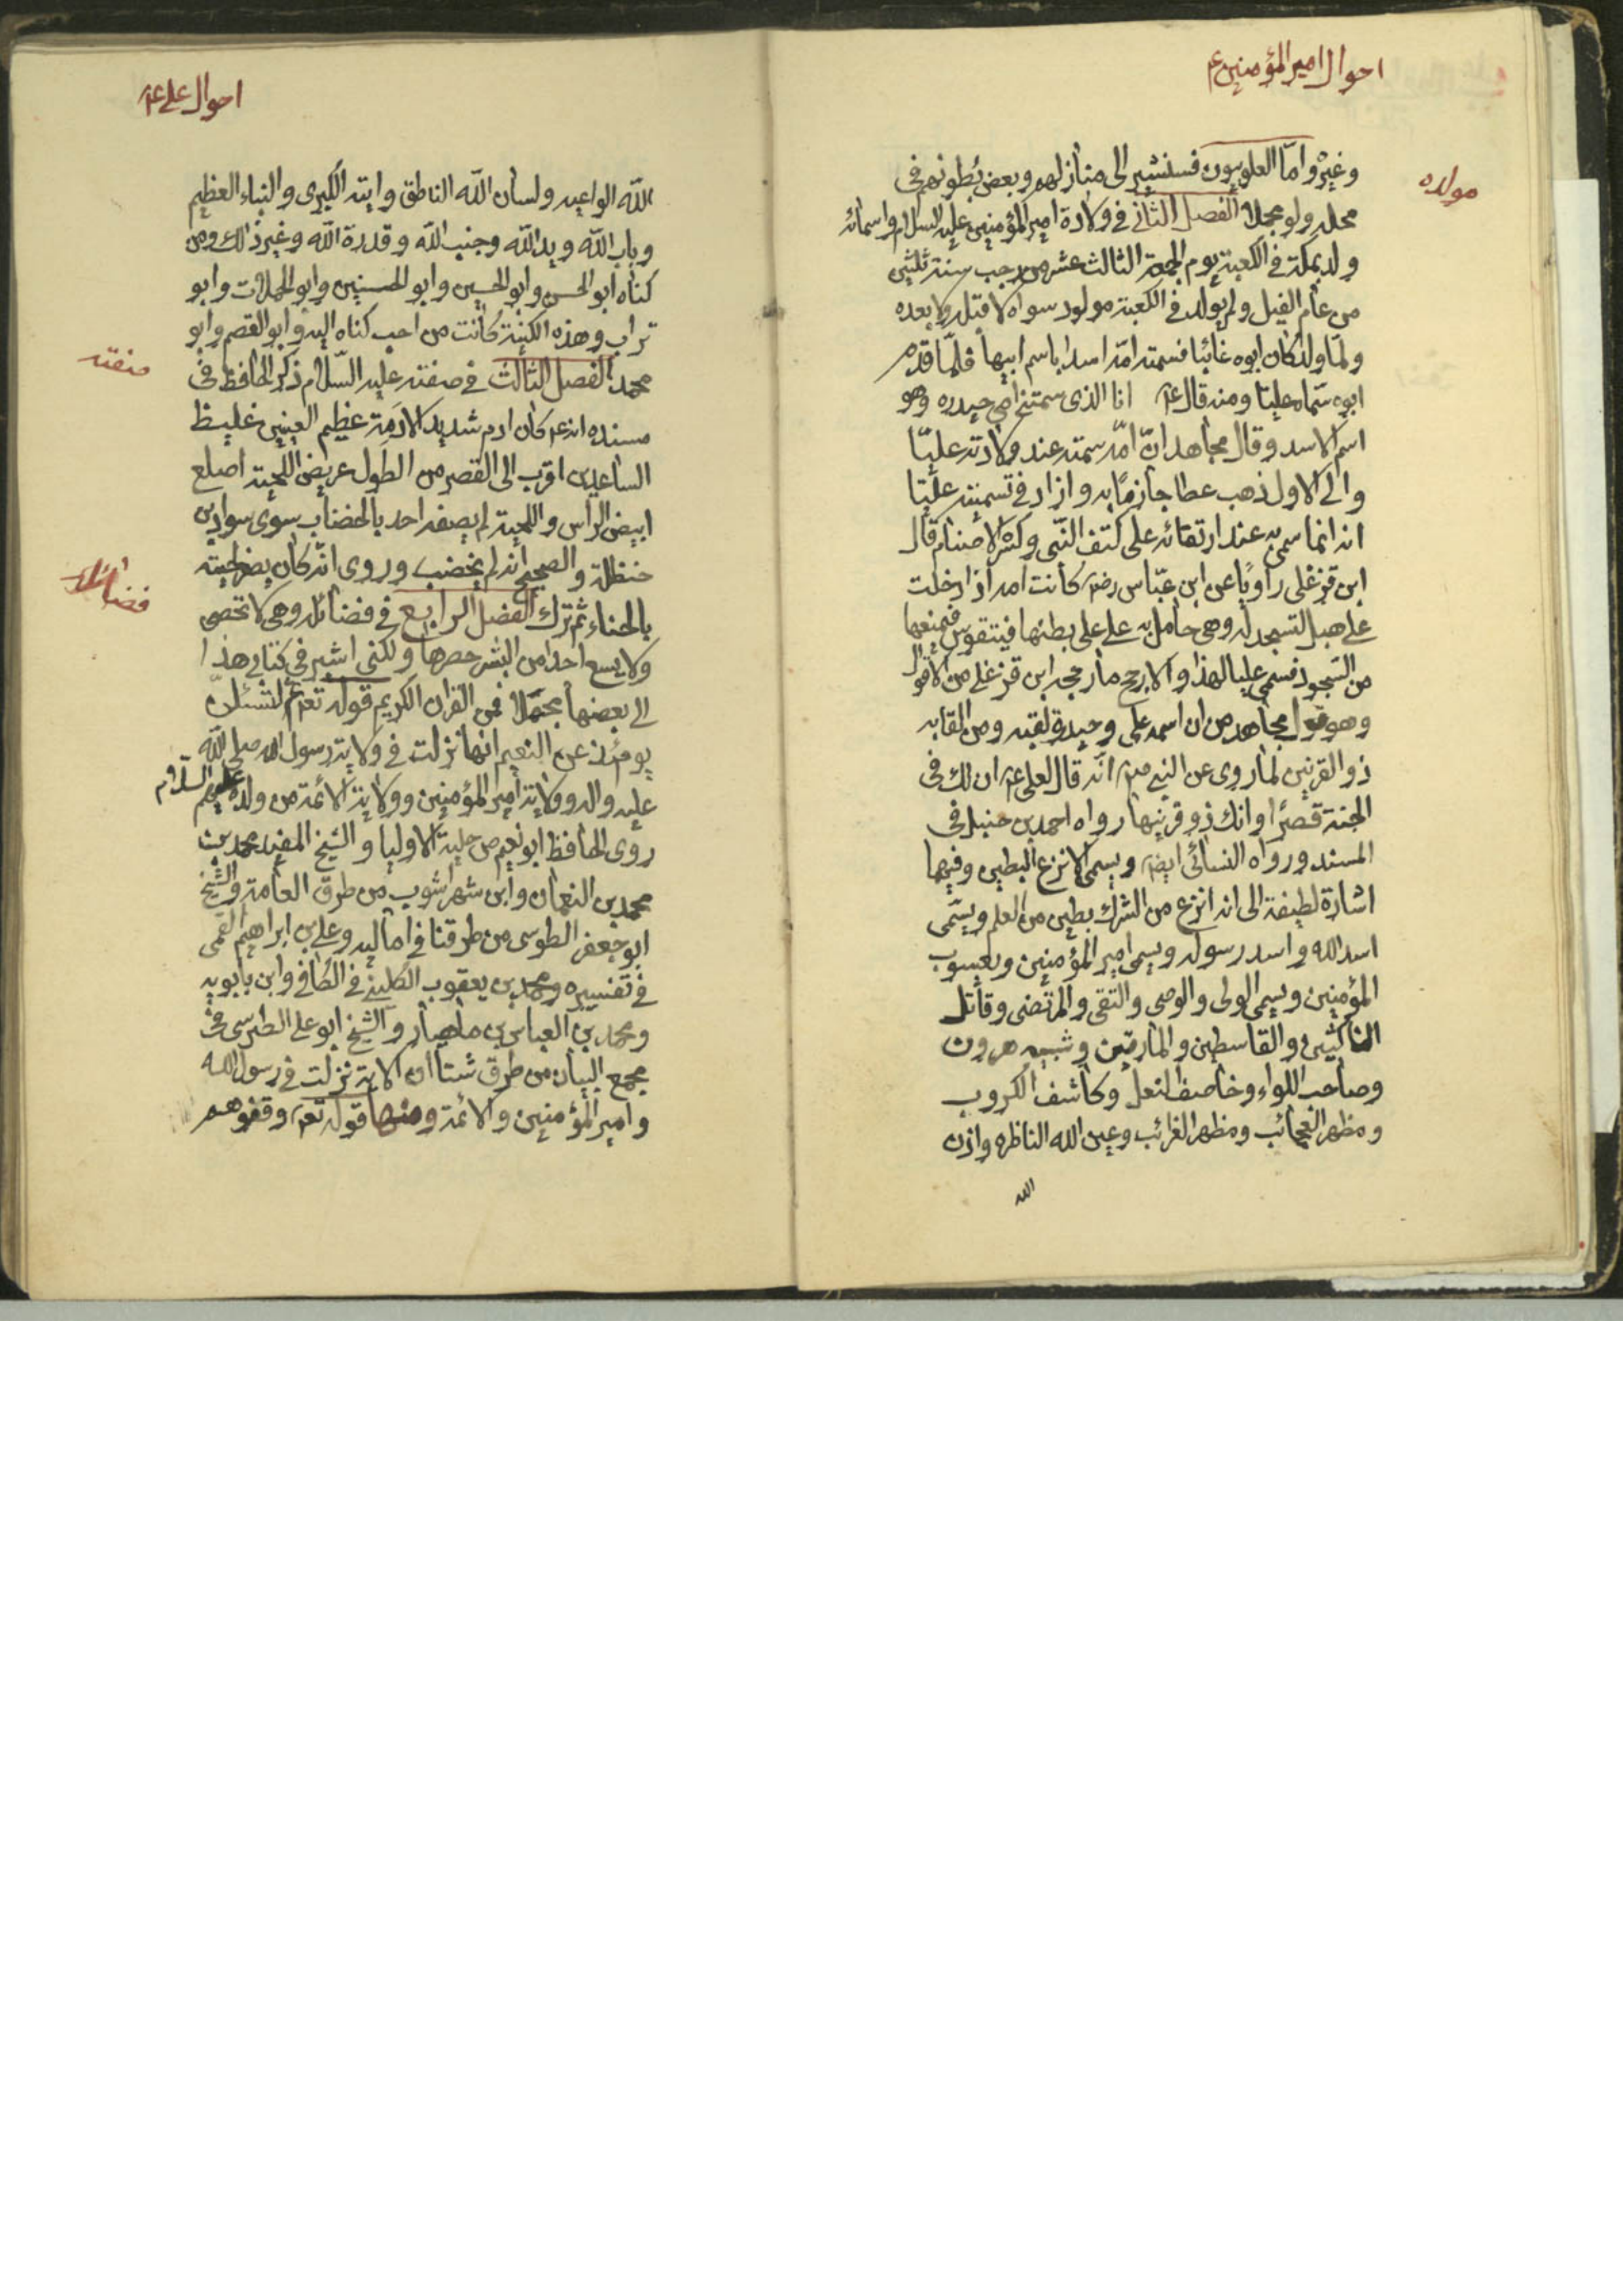 احوال امير المؤمنين ع
مولده
وغيره واما العلويون فسنشير الى منازلهم وبعض بطونهم في
محله ولو مجملا الفصل الثاني في ولادة امير المؤمنين عليه السلام واسمائه
ولد بمكة في الكعبة يوم الجمعة الثالث عشر من رجب سنة ثلثين
من عام الفيل ولم يولد في الكعبة مولود سواه لا قبله ولا بعده
ولما ولد كان ابوه غائبا فسمته امه اسدا باسم ابيها فلما قدم
ابوه سماه عليا ومنه قال ع انا الذي سمتني امي حيدره وهو
اسم الاسد وقال مجاهد ان امه سمته عند ولادته عليا
والى الاول ذهب عطا جازما به وازاد في تسميته عليا
انه انما سمي به عند ارتقائه على كتف النبي وكسر الاصنام قال
ابن قزغلي راويا عن ابن عباس رض كانت امه اذا دخلت
على هبل لتسجد له وهي حامل به على على بطنها فيتقوس فيمنعها
من السجود فسمي عليا لهذا والارجح ما رجحه ابن قزغلي من الاقوال
وهو قول مجاهد من ان اسمه علي وحيدرة لقبه ومن القابه
ذو القرنين لما روي عن النبي ص انه قال لعلي ع ان لك في
الجنة قصرا وانك ذو قرنيها رواه احمد بن حنبل في
المسند ورواه النسائي ايضا ويسمى الانزع البطين وفيهما
اشارة لطيفة الى انه انزع من الشرك بطين من العلم ويسمى
اسد الله واسد رسوله ويسمى امير المؤمنين ويعسوب
المؤمنين ويسمى الولى والوصى والتقى والمرتضى وقاتل
الناكثين والقاسطين والمارقين وشبيه هرون
وصاحب اللواء وخاصف النعل وكاشف الكروب
ومظهر العجائب ومظهر الغرائب وعين الله الناظره واذن
الله
احوال علي ع
الله الواعيه ولسان الله الناطق وايته الكبرى والنباء العظيم
وباب الله ويد الله وجنب الله وقدرة الله وغير ذالك ومن
كناه ابو الحسن وابو الحسين وابو الحسنين وابو الحملات وابو
تراب وهذه الكنية كانت من احب كناه اليه وابو القصم وابو
محمد الفصل الثالث في صفته عليه السلام ذكر الحافظ في
صفته
مسنده انه ع كان ادم شديد الادمة عظيم العينين غليظ
الساعدين اقرب الى القصر من الطول عريض اللحية اصلع
ابيض الراس واللحية لم يصفه احد بالخضاب سوى سوادة بن
حنظلة والصحيح انه لم يخضب وروى انه كان يصفر لحيته
فضائله
بالحناء ثم ترك الفصل الرابع في فضائله وهي لا تحصى
ولا يسع احدا من البشر حصرها ولكني اشير في كتابي هذا
الى بعضها مجملا فمن القران الكريم قوله تعالى ثم لتسئلن
يومئذ عن النعيم انها نزلت في ولاية رسول الله صلى الله
عليه واله وولاية امير المؤمنين وولاية الائمة من ولده عليهم السلام
روى الحافظ ابو نعيم من حلية الاوليا والشيخ المفيد محمد بن
محمد بن النعمان وابن شهراشوب من طرق العامة والشيخ
ابو جعفر الطوسى من طرقنا في اماليه وعلي بن ابراهيم القمى
في تفسيره ومحمد بن يعقوب الكليني في الكافي وابن بابويه
ومحمد بن العباس بن ماهيار والشيخ ابو علي الطبرسي في
مجمع البيان من طرق شتا ان الاية نزلت في رسول الله
وامير المؤمنين والائمة ومنها قوله تعالى وقفوهم